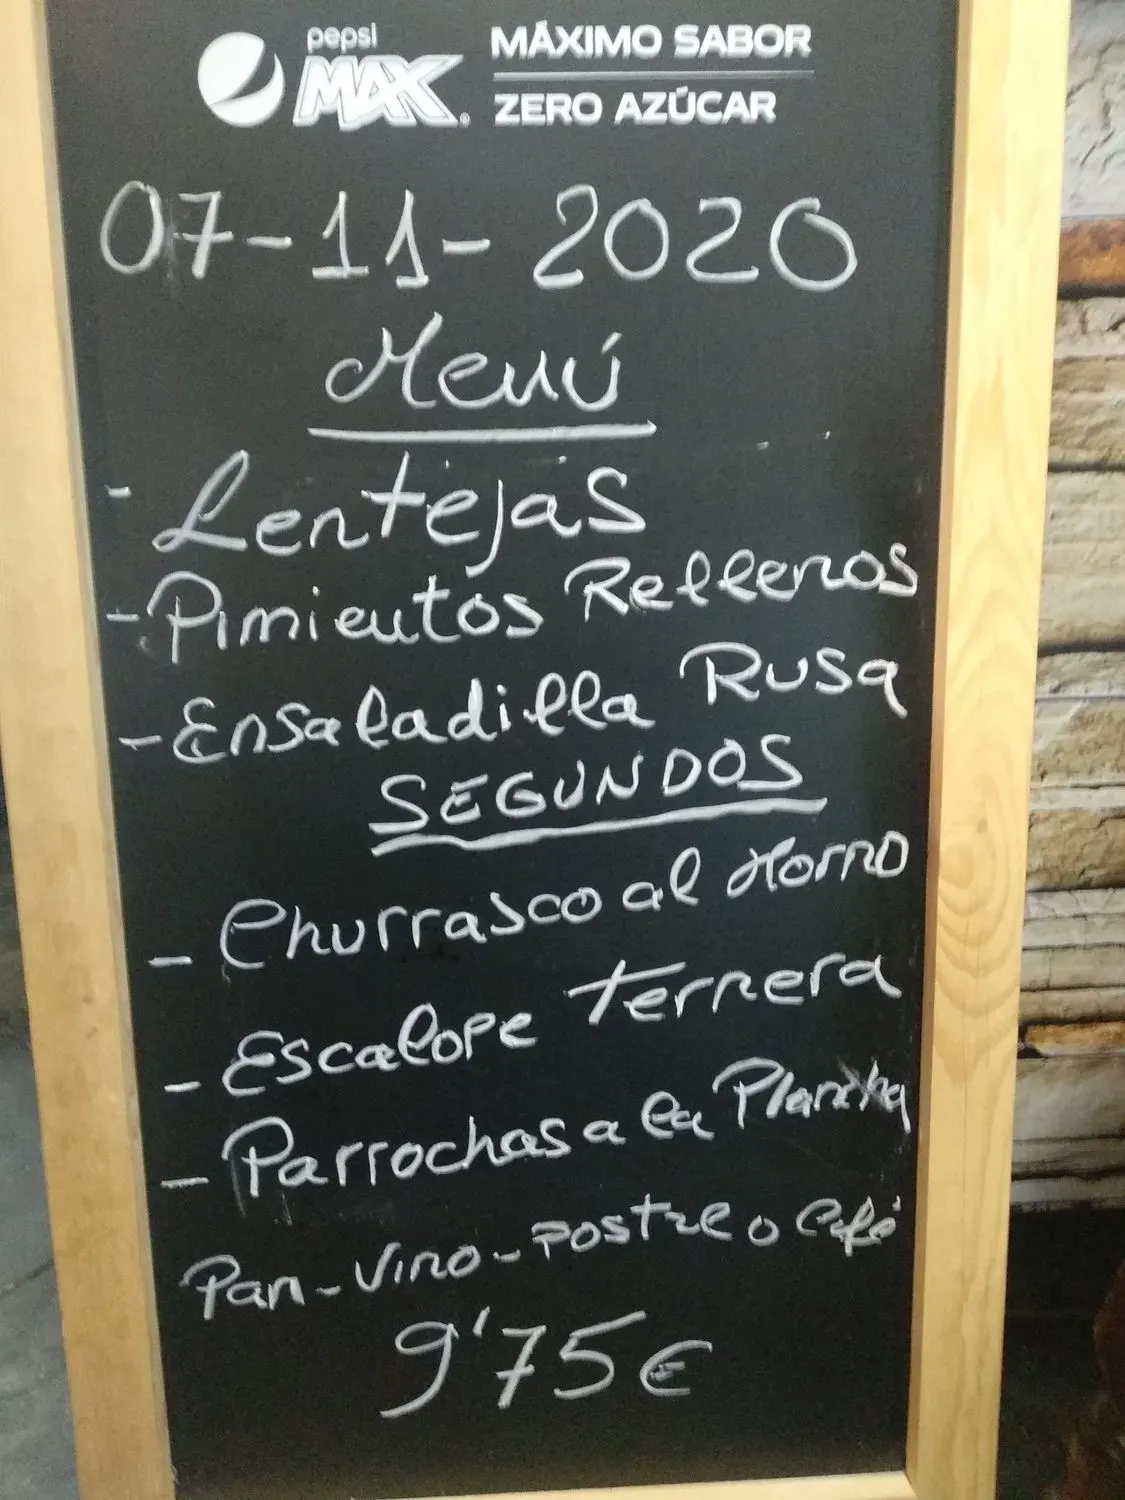 pepsi
MAX
MÁXIMO SABOR
ZERO AZÚCAR
07-11-2020
Menú
- Lentejas
- Pimientos Rellenos
- Ensaladilla Rusa
SEGUNDOS
- Churrasco al Horno
- Escalope Ternera
- Parrochas a la Plancha
Pan-Vino-Postre o Café
9'75€